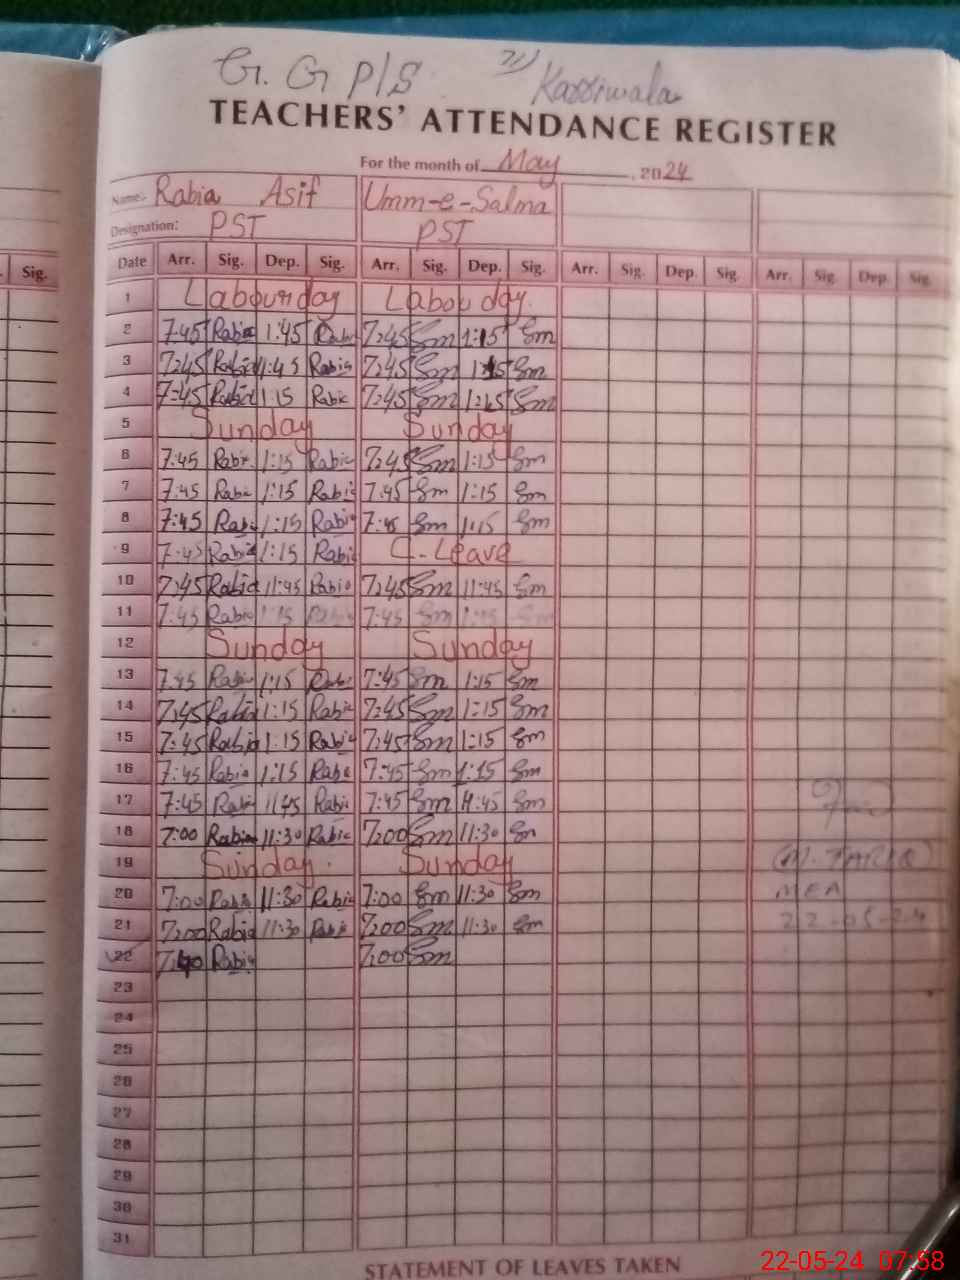 Sig.
G. G P/S Kassiwala
TEACHERS' ATTENDANCE REGISTER
For the month of May, 2024
Name:- Rabia Asif Umm-e-Salma
Designation: PST PST
Date Arr. Sig. Dep. Sig. Arr. Sig. Dep. Sig. Arr. Sig. Dep. Sig. Arr. Sig. Dep. Sig.
1 Labour day Labou day.
2 7:45 Rabia 1:45 Rabi 7:45 Sm 1:15 Sm
3 7:45 Rabia 1:45 Rabia 7:45 Sm 1:15 Sm
4 7:45 Rabia 1:15 Rabic 7:45 Sm 1:15 Sm
5 Sunday Sunday
6 7:45 Rabi 1:15 Rabic 7:45 Sm 1:15 Sm
7 7:45 Rabi 1:15 Rabia 7:45 Sm 1:15 Sm
8 7:45 Rabi 1:15 Rabia 7:45 Sm 1:15 Sm
9 7:45 Rabia 1:15 Rabia C-Leave
10 7:45 Rabia 11:45 Rabia 7:45 Sm 11:45 Sm
11 7:45 Rabia 1:15 Rabia 7:45 Sm 1:15 Sm
12 Sunday Sunday
13 7:45 Rabi 1:15 Rabi 7:45 Sm 1:15 Sm
14 7:45 Rabia 1:15 Rabic 7:45 Sm 1:15 Sm
15 7:45 Rabia 1:15 Rabia 7:45 Sm 1:15 Sm
16 7:45 Rabia 1:15 Rabe 7:45 Sm 1:15 Sm
17 7:45 Rabi 11:45 Rabi 7:45 Sm 11:45 Sm
18 7:00 Rabia 11:30 Rabic 7:00 Sm 11:30 Sm
19 Sunday. Sunday (M. TARIQ)
20 7:00 Rabia 11:30 Rabia 7:00 Sm 11:30 Sm MEA
21 7:00 Rabia 11:30 Rabi 7:00 Sm 11:30 Sm 22-05-24
22 Rabia 7:00 Sm
23
24
25
26
27
28
29
30
31
STATEMENT OF LEAVES TAKEN
22-05-24 07:58